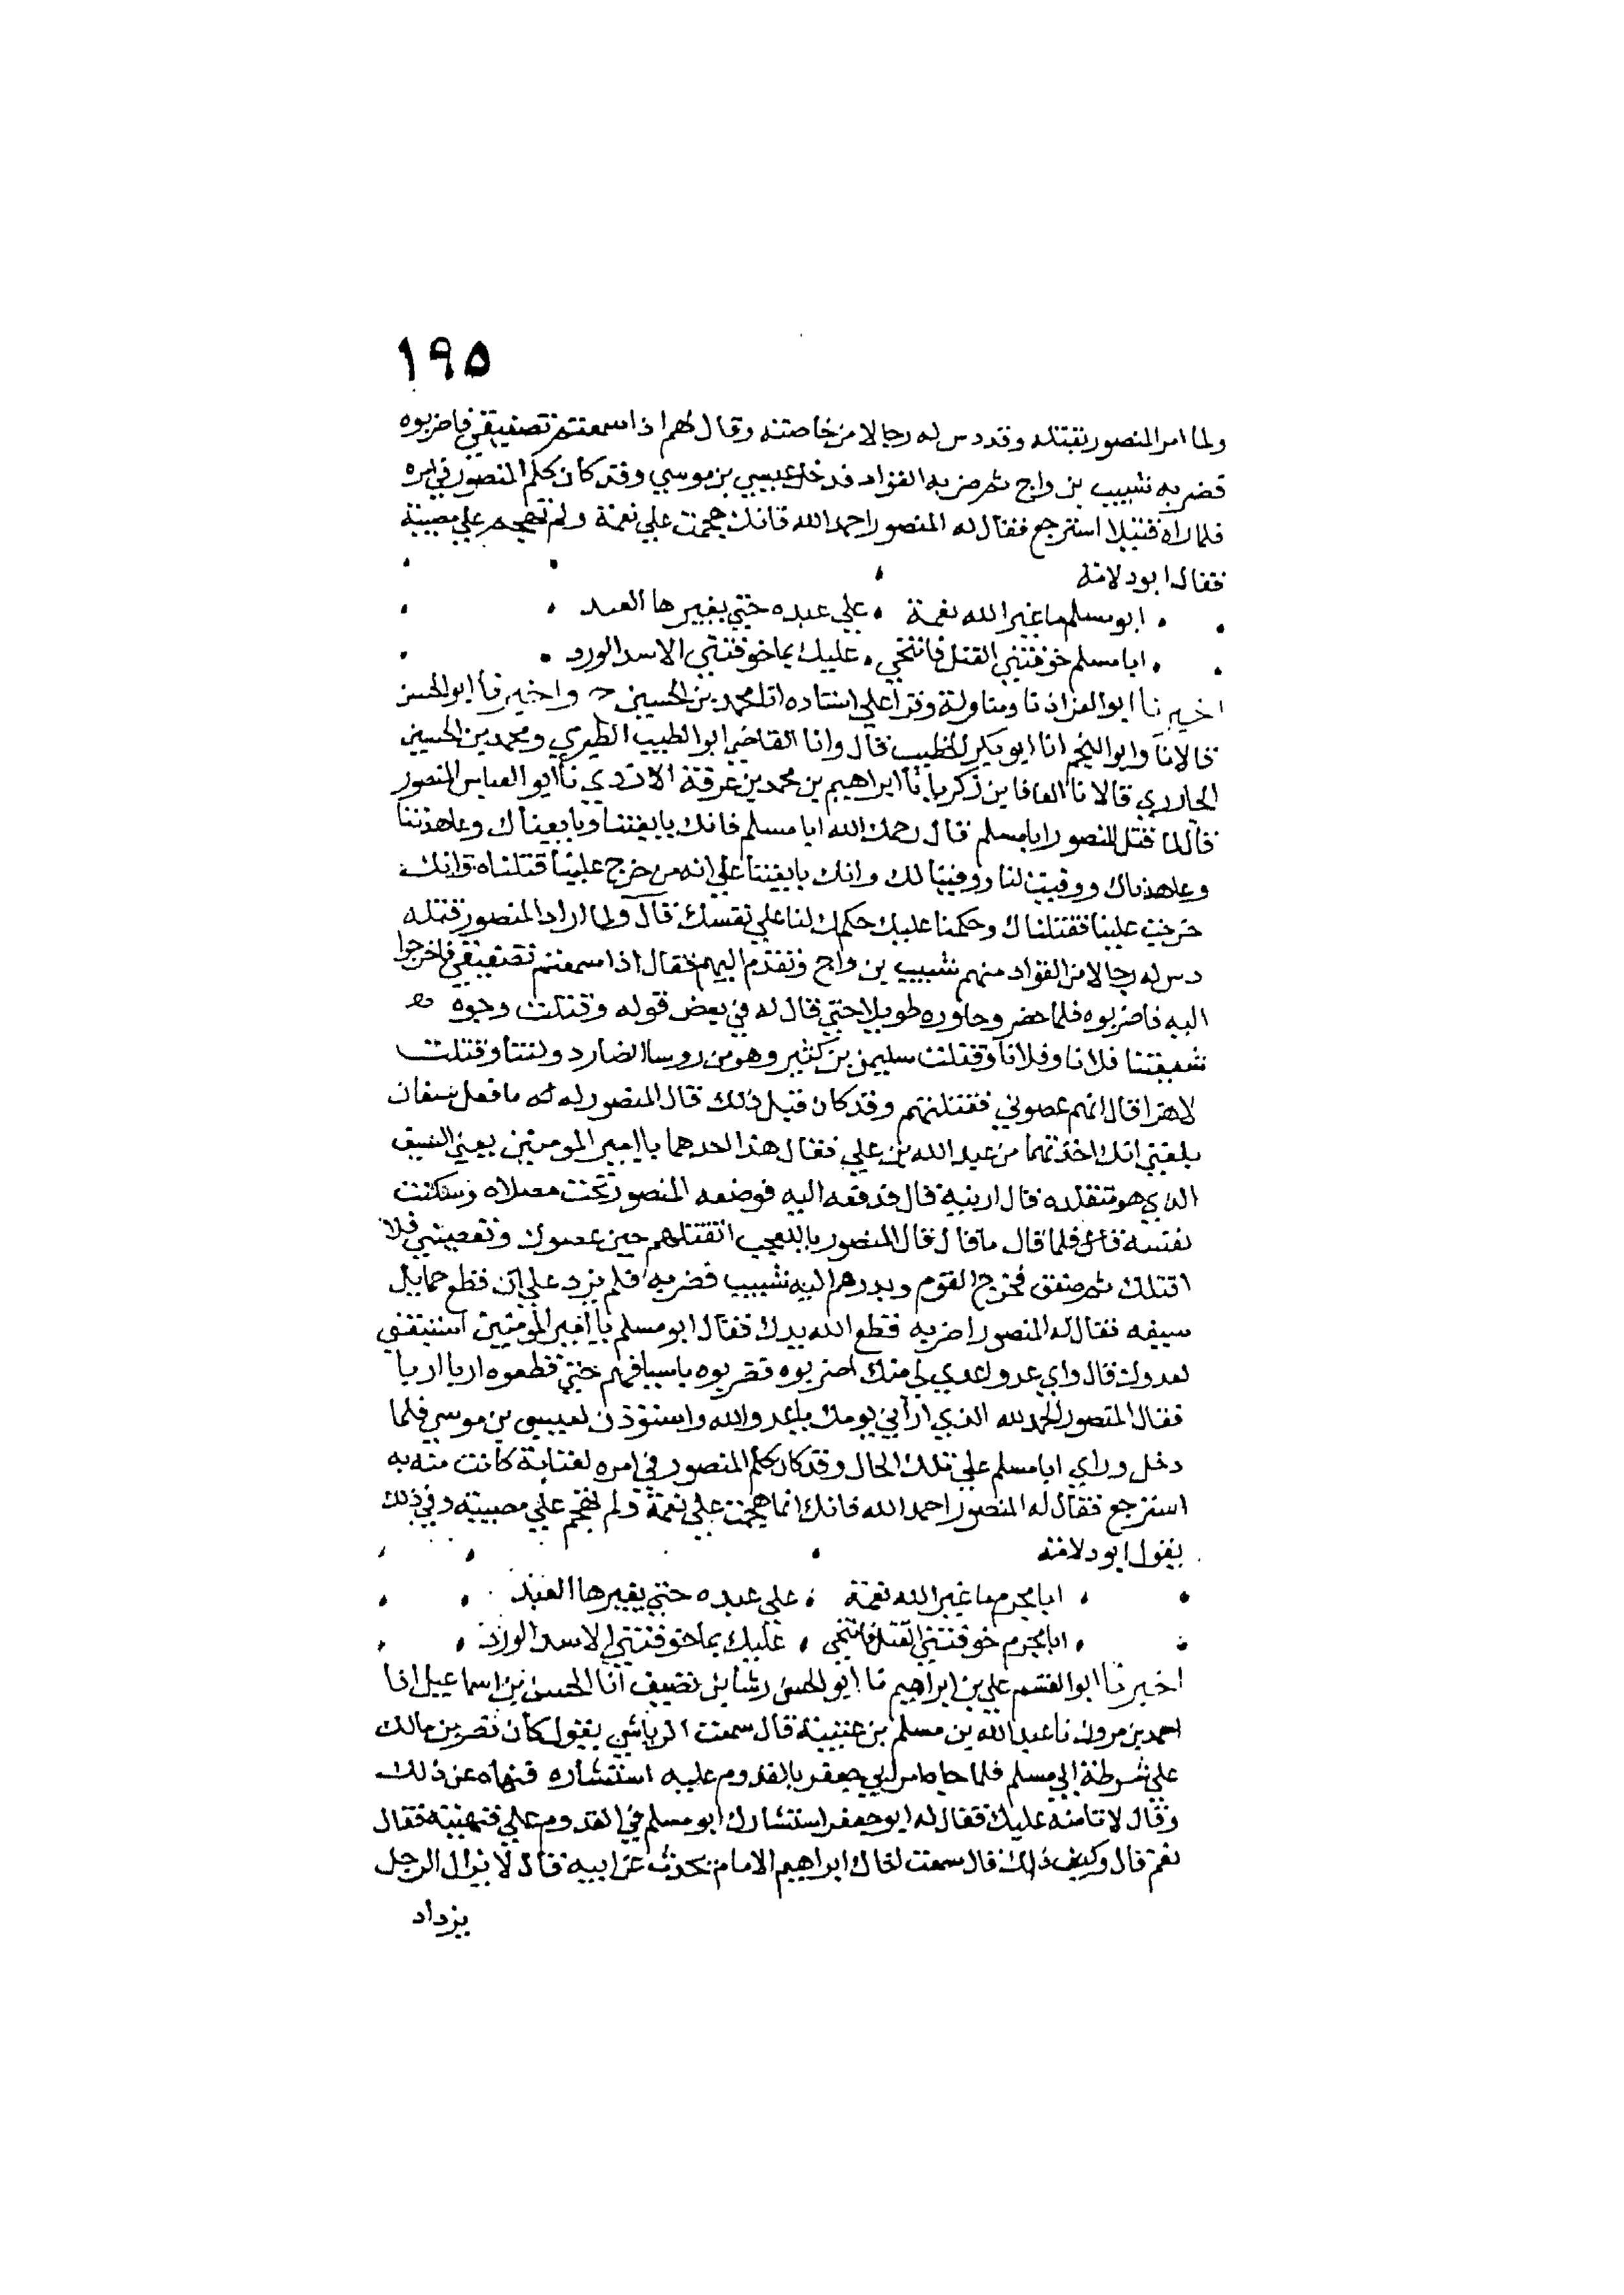 ١٩٥
ولما امر المنصور بقتله وقد دس له رجالا من خاصته وقال لهم اذا سمعتم تصفيقي فاضربوه
فضربه شبيب بن واج ثم ضربه القواد فدخل عيسى بن موسي وقد كان كلم المنصور في امره
فلما راه قتيلا استرجع فقال له المنصور احمد الله فانك هجمت علي نعمة ولم تهجم علي مصيبة
فقال ابو دلامة
ابو مسلم ما غير الله نعمة ٠ علي عبده حتي يغيرها العبد
ابا مسلم خوفتني القتل فانتحي ٠ عليك بما خوفتني الاسد الورد
اخبرنا ابو العز اذنا ومناولة وقرا علي اسناده انا محمد بن الحسين ح واخبرنا ابو الحسن
قالا نا وابو النجم انا ابو بكر الخطيب قال وانا القاضي ابو الطيب الطبري ومحمد بن الحسين
الجازري قالا نا المعافا بن زكريا نا ابراهيم بن محمد بن عرفة الازدي نا ابو العباس المنصور
قال لما قتل المنصور ابا مسلم قال رحمك الله ابا مسلم فانك بايعتنا وبايعناك وعاهدتنا
وعاهدناك ووفيت لنا ووفينا لك وانك بايعتنا علي انه من خرج علينا قتلناه وانك
خرجت علينا فقتلناك وحكمنا عليك حكمك لنا علي نفسك قال ولما اراد المنصور قتله
دس له رجالا من القواد منهم شبيب بن واج وتقدم اليهم فقال اذا سمعتم تصفيقي فاخرجوا
اليه فاضربوه فلما حضر وحاوره طويلا حتي قال له في بعض قوله وقتلت وجوه
شيعتنا فلانا وفلانا وقتلت سليمن بن كثير وهو من روسا انصار دولتنا وقتلت
لاهزا قال انهم عصوني فقتلتهم وقد كان قبل ذلك قال المنصور له ما فعل سيفان
بلغني انك اخذتهما من عبد الله بن علي فقال هذا احدهما يا امير المومنين يعني السيف
الذي هو متقلده قال ارنيه قال فدفعه اليه فوضعه المنصور تحت مصلاه وسكنت
نفسه قال فلما قال ما قال قال المنصور يا للعجب اتقتلهم حين عصوك وتعصيني فلا
اقتلك ثم صفق فخرج القوم وبدرهم اليه شبيب فضربه فلم يزد علي ان قطع حمايل
سيفه فقال له المنصور اضربه قطع الله يدك فقال ابو مسلم يا امير المومنين استبقني
لعدوك قال واي عدو اعدي لي منك اضربوه فضربوه باسيافهم حتي قطعوه اربا اربا
فقال المنصور الحمد لله الذي اراني يومك يا عدو الله واستوذن لعيسي بن موسي فلما
دخل وراي ابا مسلم علي تلك الحال وقد كان كلم المنصور في امره لعناية كانت منه به
استرجع فقال له المنصور احمد الله فانك انما هجمت علي نعمة ولم تهجم علي مصيبة وفي ذلك
يقول ابو دلامة
ابا مجرم ما غير الله نعمة ٠ علي عبده حتي يغيرها العبد
ابا مجرم خوفتني القتل فانتحي ٠ عليك بما خوفتني الاسد الورد
اخبرنا ابو القسم علي بن ابراهيم نا ابو الحسن رشا بن نظيف انا الحسن بن اسماعيل انا
احمد بن مروان نا عبد الله بن مسلم بن قتيبة قال سمعت الرياشي يقول كان نصر بن مالك
علي شرطة ابي مسلم فلما جاه امر ابي جعفر بالقدوم عليه استشاره فنهاه عن ذلك
وقال لا تامنه عليك فقال له ابو جعفر استشارك ابو مسلم في القدوم علي فنهيته فقال
نعم قال وكيف ذلك قال سمعت اخاك ابراهيم الامام يحدث عن ابيه قال لا يزال الرجل
يزداد